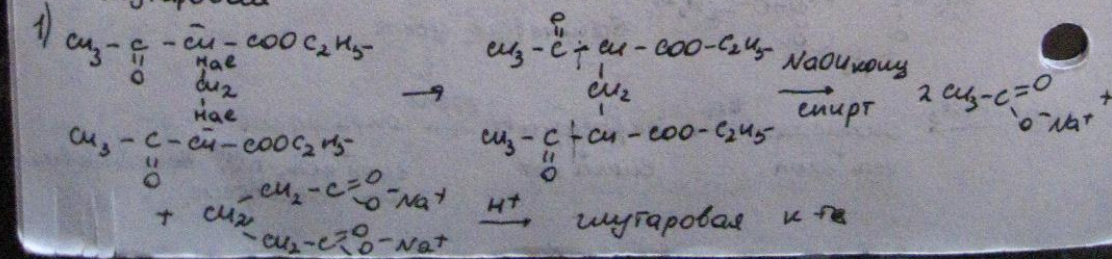 1) CH₃ – C – C̄H – COOC₂H₅
O
Hal
CH₂
Hal
CH₃ – C – C̄H – COOC₂H₅
O
→
O
CH₃ – C – CH – COO – C₂H₅
CH₂
CH₃ – C – CH – COO – C₂H₅
O
NaOH конц
спирт
→
2 CH₃ – C = O
O⁻Na⁺ +
+ CH₂
CH₂ – C = O
O⁻Na⁺
CH₂ – C = O
O⁻Na⁺
H⁺
→ глутаровая к-та